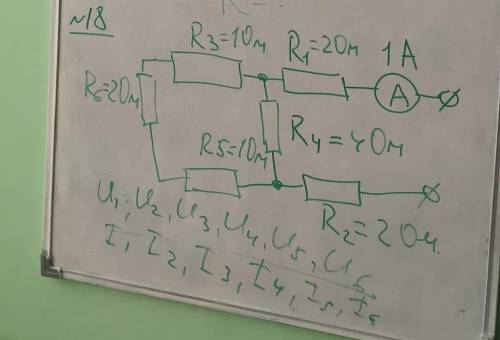 №18
R3=1Ом R1=2Ом 1A
R6=2Ом A
R5=1Ом R4=4Ом
R2=2Ом
U1, U2, U3, U4, U5, U6
I1, I2, I3, I4, I5, I6